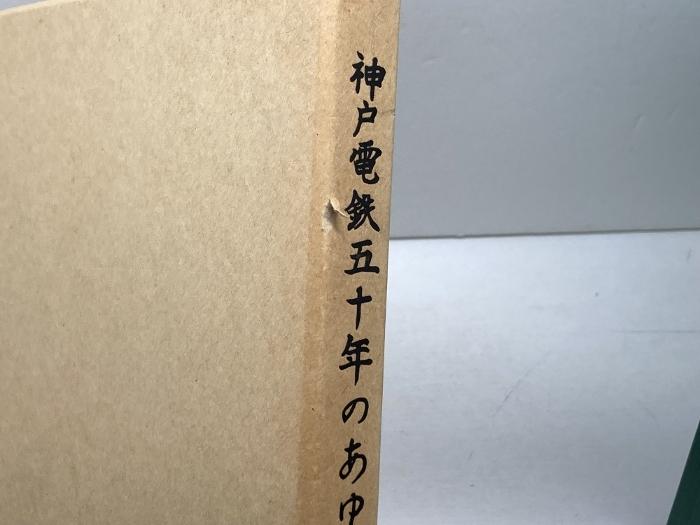 神戸電鉄五十年のあゆ